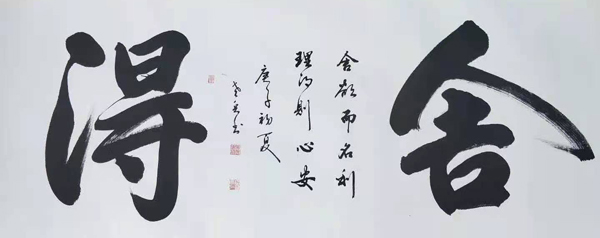 舍
舍欲而名利
理得则心安
庚子初夏
書
得